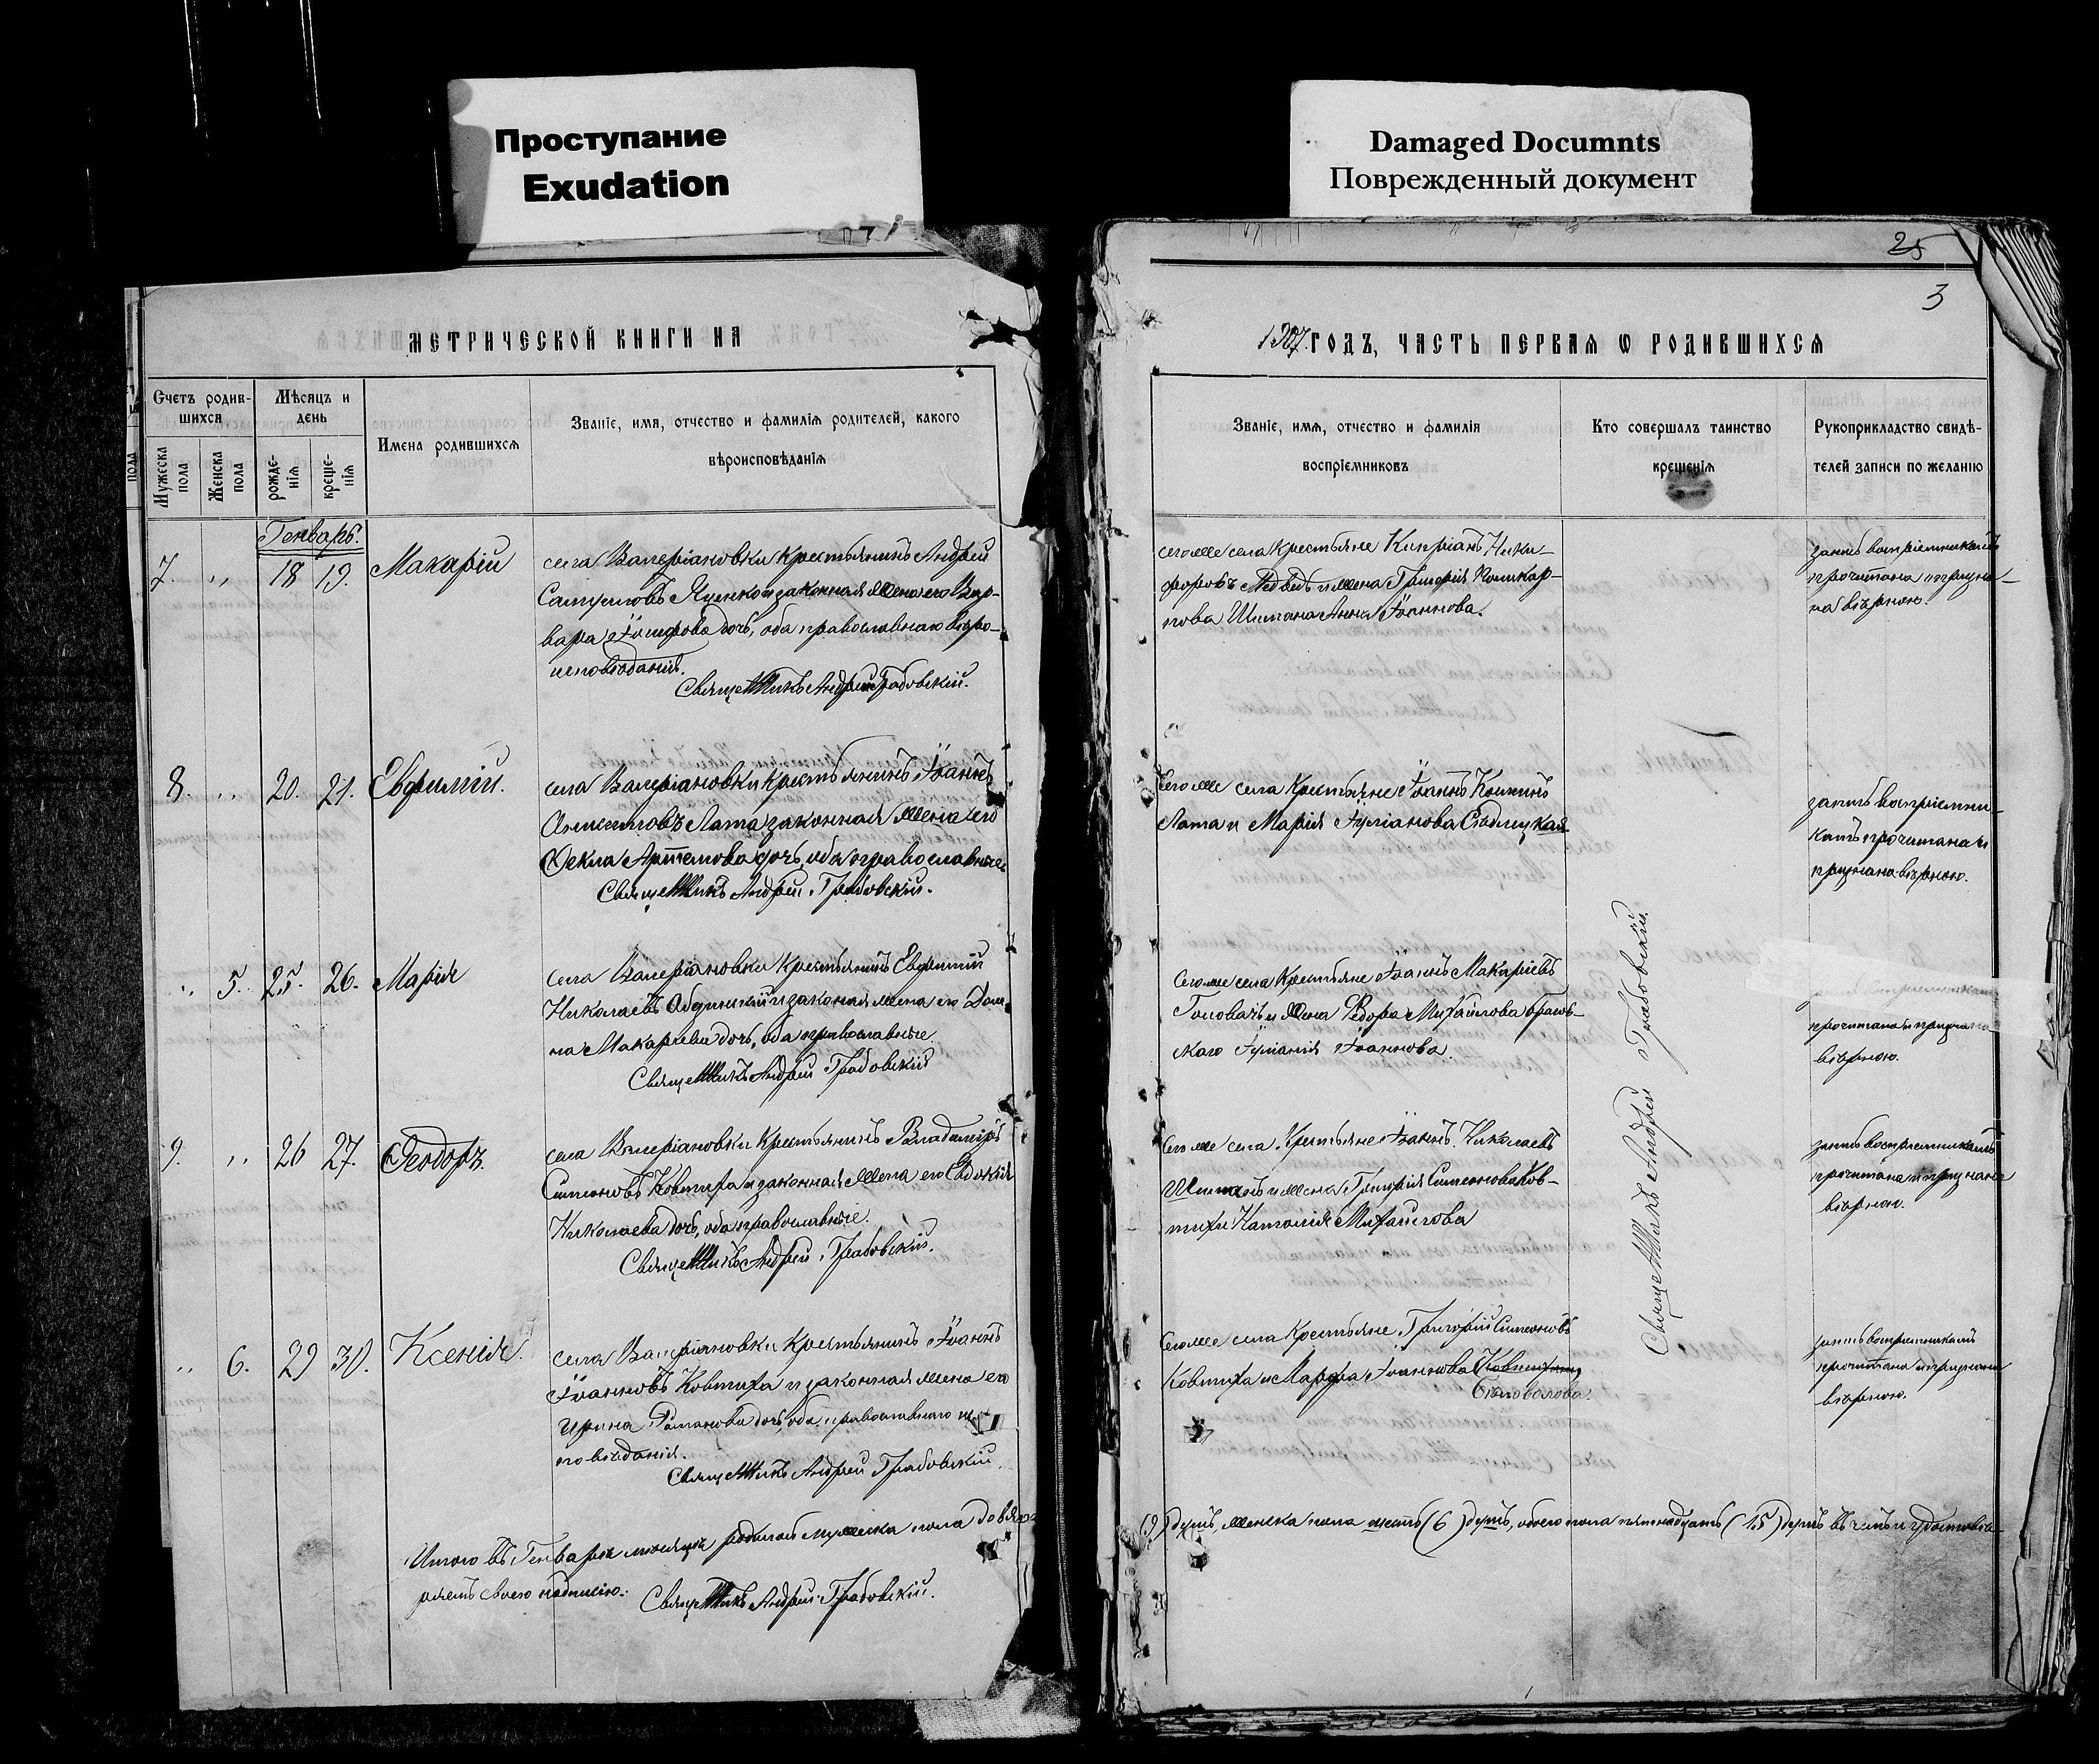 Проступание
Exudation
Damaged Documnts
Поврежденный документ
25
3
МЕТРИЧЕСКОЙ КНИГИ НА
1907 ГОДЪ, ЧАСТЬ ПЕРВАЯ Ѡ РОДИВШИХСЯ
Счетъ родив-
шихся
Мужеска
пола
Женска
пола
Мѣсяцъ и
день
рожде-
нія
креще-
нія
Имена родившихся
Званіе, имя, отчество и фамилія родителей, какого
вѣроисповѣданія
Званіе, имя, отчество и фамилія
воспріемниковъ
Кто совершалъ таинство
крещенія
Рукоприкладство свидѣ-
телей записи по желанію
Генварь.
7. „ 18 19. Макарій
села Валеріановки крестьянинъ Андрей
Самуиловъ Яценко и законная жена его Вар-
вара Іосифова дочь, оба православнаго вѣро-
исповѣданія.
Священникъ Андрей Грабовскій.
сего же села крестьяне Кипріанъ Ники-
форовъ Медведь и жена Григорія Поликар-
пова Шимана Анна Іоаннова.
запись воспріемникамъ
прочитана и призна-
на вѣрною.
8. „ 20. 21. Евфимій.
села Валеріановки крестьянинъ Іоаннъ
Лата законная жена его
Ѳекла Артемова дочь, оба православные
Священникъ Андрей Грабовскій.
Сего же села крестьяне Іоаннъ
Лата и Марія Іуліанова
запись воспріемни-
камъ прочитана и
признана вѣрною.
„ 5. 25. 26. Марія
села Валеріановки крестьянинъ Евфимій
Николаевъ и законная жена его Дом-
на Макаріева дочь, оба православные.
Священникъ Андрей Грабовскій
Сего же села крестьяне Іоаннъ Макаріевъ
Головачъ и жена Ѳедора Михайлова
Іуліанія Іоаннова.
прочитана и признана
вѣрною.
9. „ 26 27. Ѳеодоръ.
села Валеріановки крестьянинъ Владиміръ
Симеоновъ Ковтуха и законная жена его Евдокія
Николаева дочь, оба православные.
Священникъ Андрей Грабовскій.
Сего же села крестьяне Іоаннъ Николаевъ
Шиманъ и жена Григорія Симеонова Ков-
тухи Наталія Михайлова
запись воспріемникамъ
прочитана и признана
вѣрною.
„ 6. 29 30. Ксенія.
села Валеріановки крестьянинъ Іоаннъ
Іоанновъ Ковтуха и законная жена его
Ирина Романова дочь, оба православнаго ис-
повѣданія.
Священникъ Андрей Грабовскій.
Сего же села крестьяне Григорій Симеоновъ
Ковтуха и Марфа Іоаннова
Бѣловолова.
запись воспріемникамъ
прочитана и признана
вѣрною.
Священникъ Андрей Грабовскій.
Итого въ Генварѣ мѣсяцѣ родилось мужеска пола девять
(9) душъ, женска пола шесть (6) душъ, обоего пола пятнадцать (15) душъ въ чемъ и удостовѣ-
ряемъ своею подписью:
Священникъ Андрей Грабовскій.